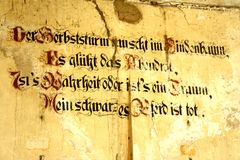 Der Herbststurm rauscht im Lindenbaum,
Es glüht das Abendrot,
Ist's Wahrheit oder ist's ein Traum,
Mein schwarzes Pferd ist tot.